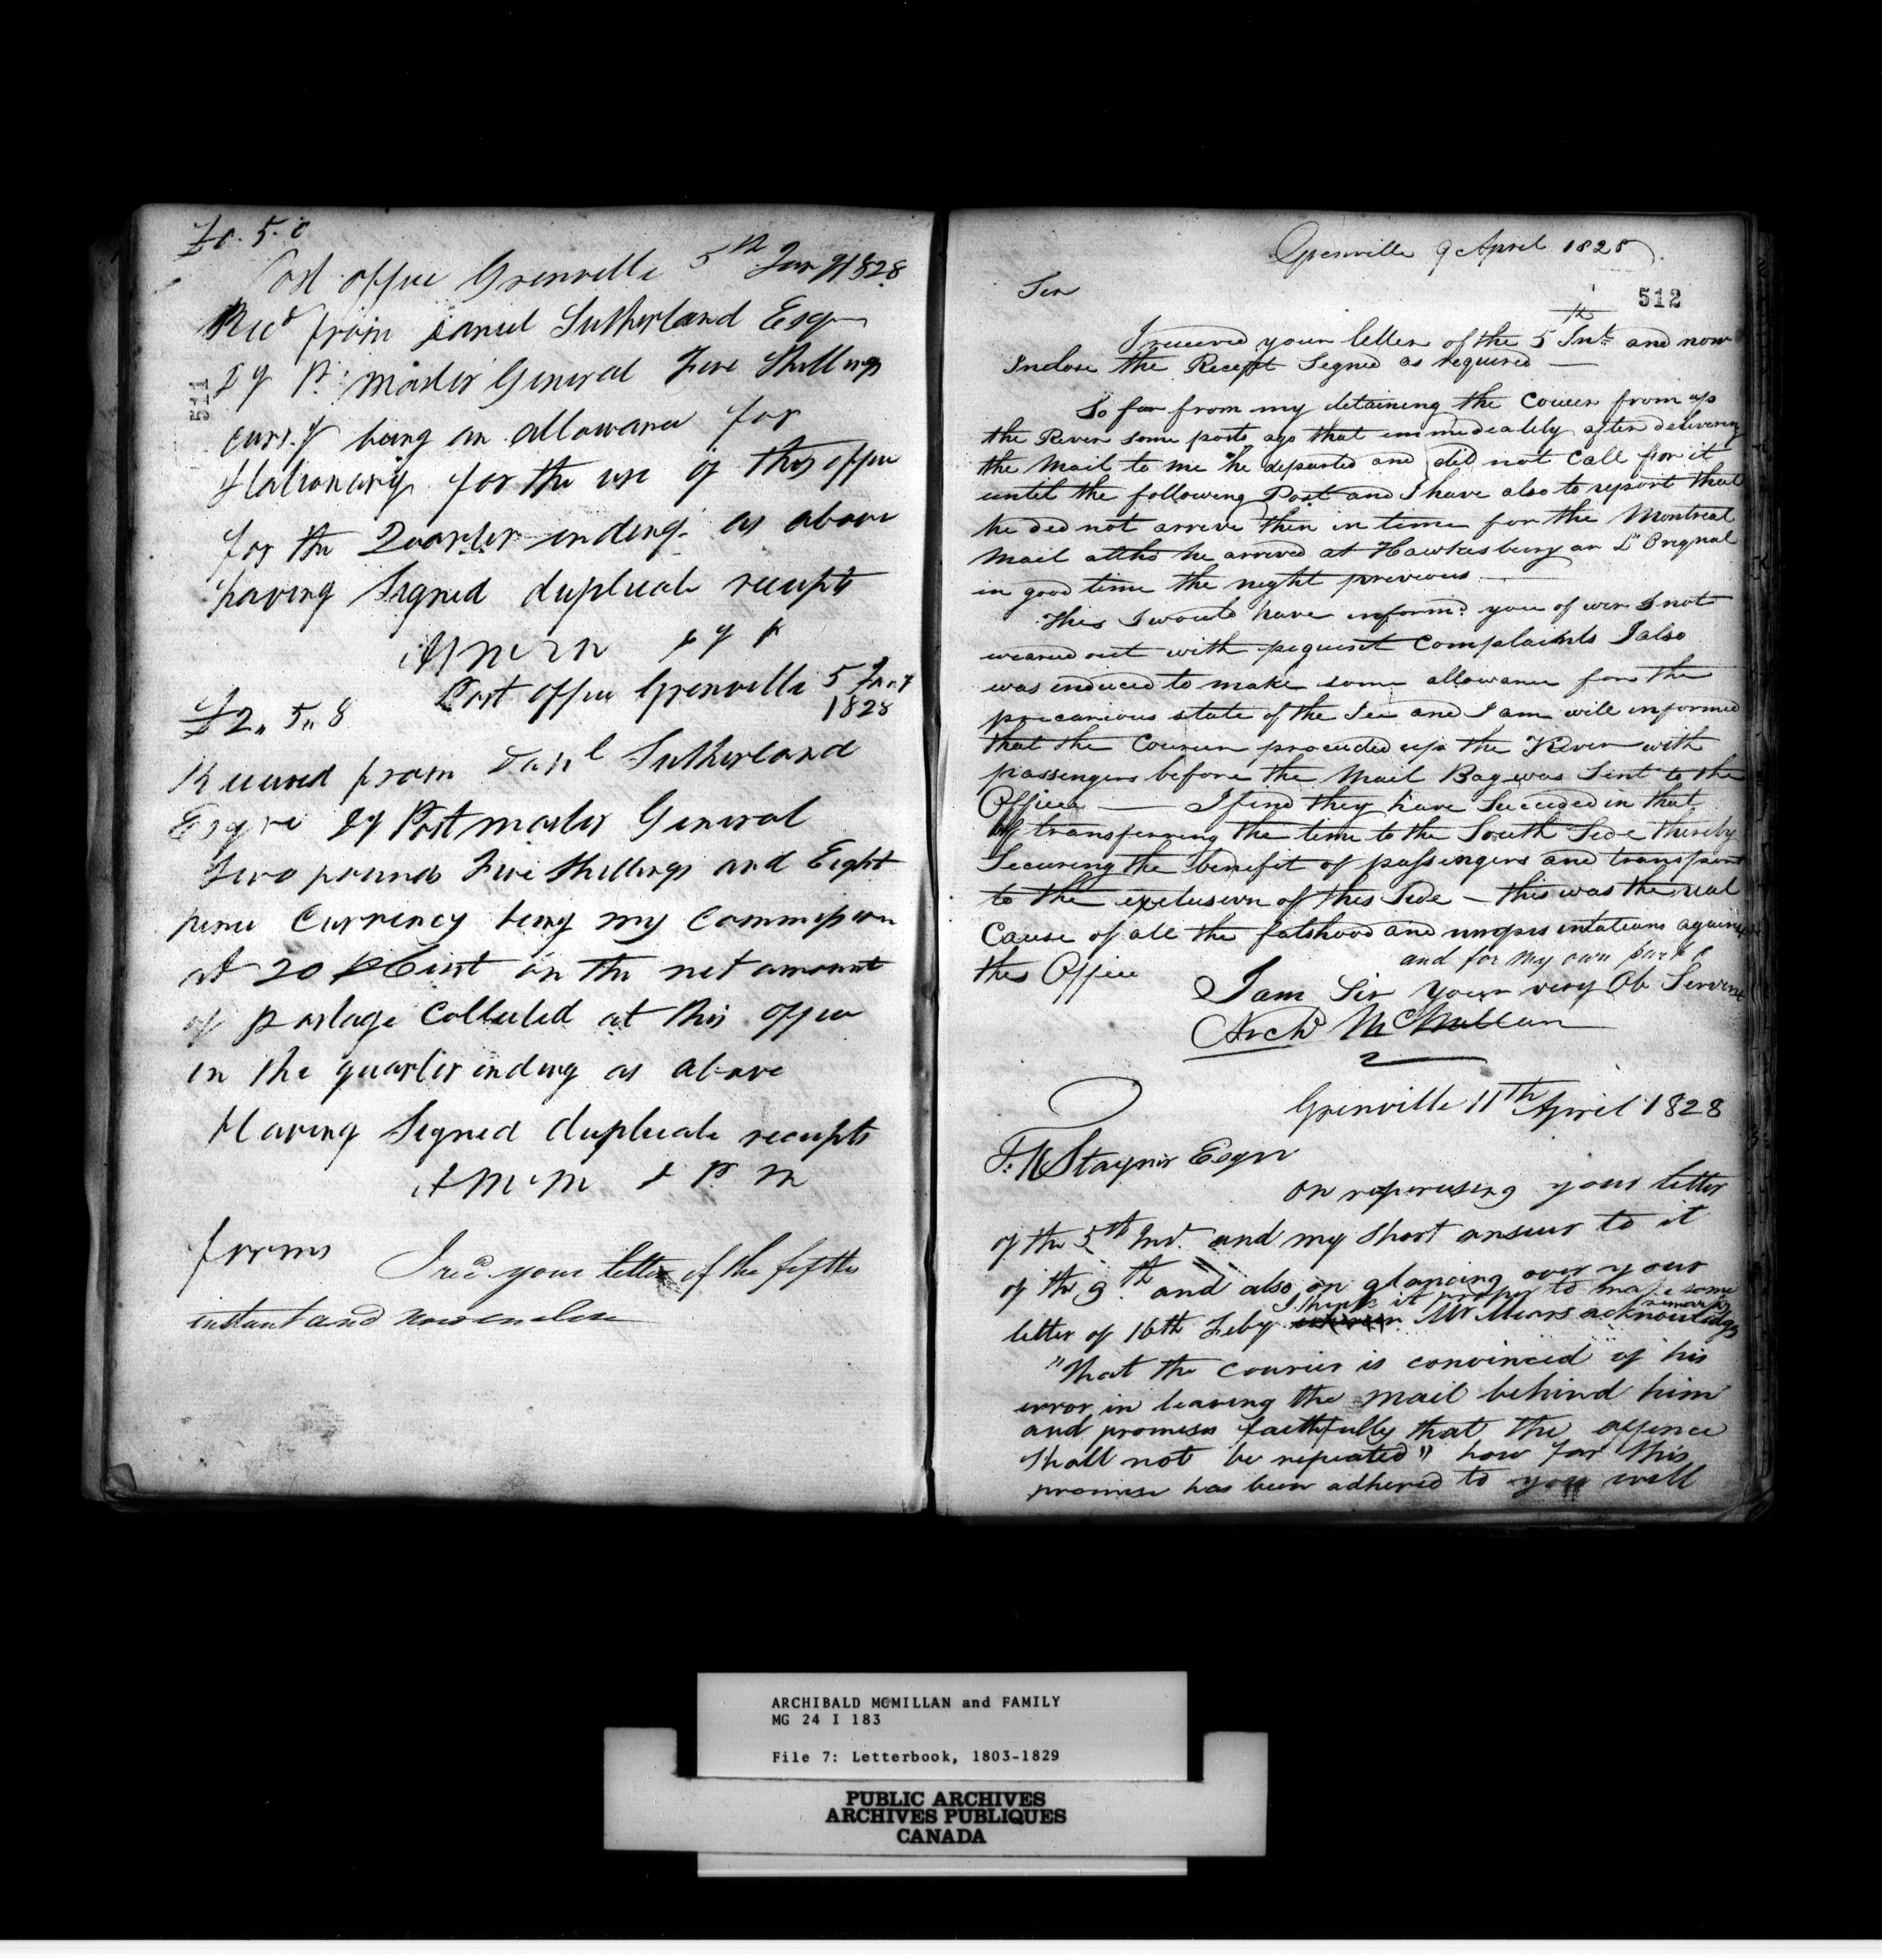 £0. 5. 0
Post office Grenville 5th Jany 1828
Recd from Daniel Sutherland Esqr
Dy P. Master General Five Shillings
curr.y being an allowance for
Stationary for the use of this office
for the Quarter ending as above
having Signed duplicate receipts
A McM
511
£2,, 5,, 8
Post office Grenville 5 Jany
1828
Received from Danl Sutherland
Esqre Dy Postmaster General
Two pounds Five Shillings and Eight
pence Currency being my Commission
at 20 P Cent on the net amount
of postage Collected at this office
in the quarter ending as above
Having Signed duplicate receipts
A McM & P M
forms I recd your letter of the fifth
instant and now enclose
Grenville 9 April 1828
512
Sir
I received your letter of the 5th Inst. and now
Inclose the Receipt Signed as required —
So far from my detaining the Courier from up
the River some posts ago that immediately after delivering
the Mail to me he departed and did not Call for it
until the following Post and I have also to report that
he did not arrive then in time for the Montreal
Mail altho he arrived at Hawkesbury an L'Orignal
in good time the night previous —
This I would have informd you of wer I not
wearied out with Complaints I also
was induced to make some allowance for the
precarious state of the Ice and I am will informed
that the Courier proceeded up the River with
passengers before the Mail Bag was Sent to the
Office — I find they have Succeeded in that
of transferring the time to the South Side thereby
Securing the benefit of passengers and transport
to the exclusion of this Side — this was the real
Cause of all the falshood and against
this Office
and for my own part
I am Sir Your very Ob Servant
Archd McMillan
Grenville 11th April 1828
Stayner Esqr
On reperusing your letter
of the 5th Ind. and my Short answer to it
of the 9th and also on glancing over your
I think it proper to make some
remarks
letter of 16th Feby Mr Mears acknowledges
"That the Courier is convinced of his
error in leaving the mail behind him
and promises faithfully that the offence
Shall not be repeated" how far this
promise has been adhered to you will
ARCHIBALD McMILLAN and FAMILY
MG 24 I 183
File 7: Letterbook, 1803-1829
PUBLIC ARCHIVES
ARCHIVES PUBLIQUES
CANADA